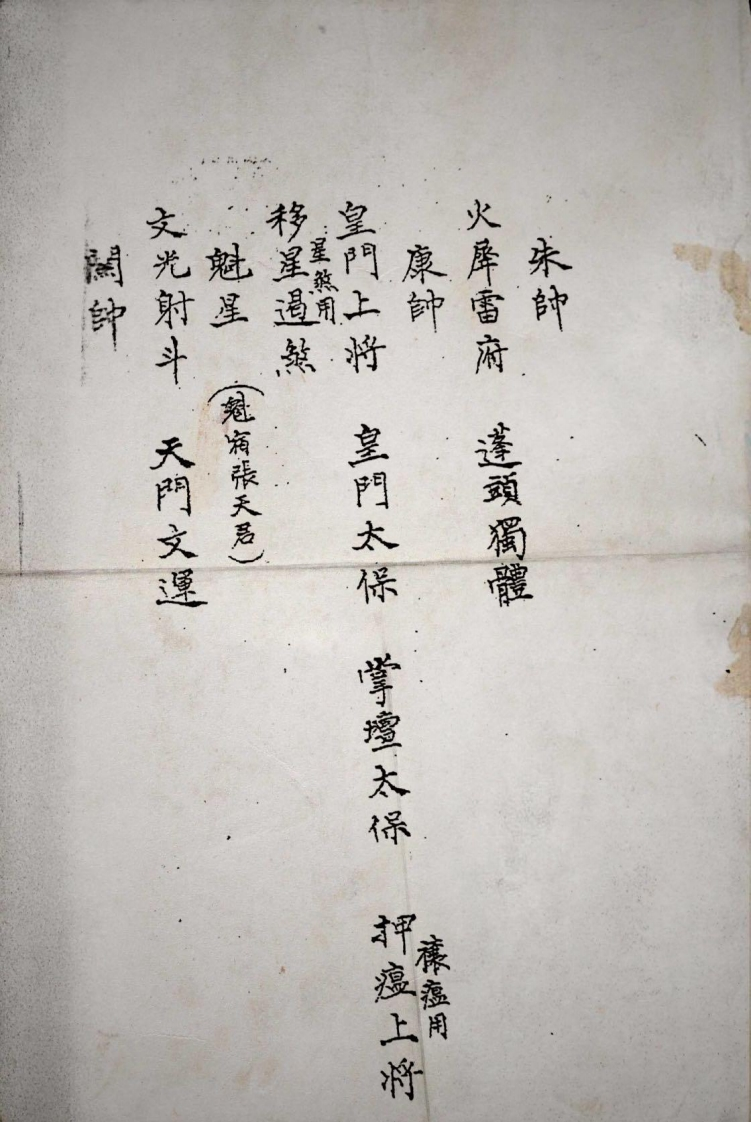 朱帥
火犀雷府 蓬頭獨體
康帥
皇門上将 皇門太保 掌壇太保 押瘟上将
禳瘟用
星煞用
移星遏煞
魁星 (魁宿張天君)
文光射斗 天門文運
關帥